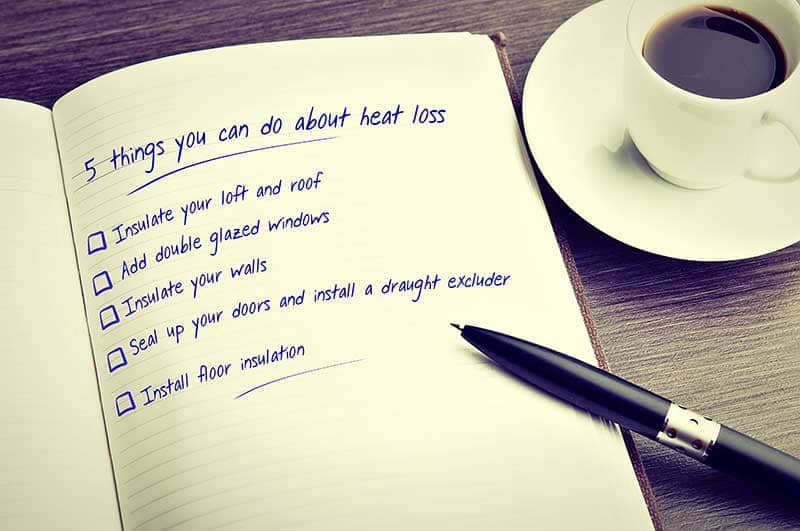 5 things you can do about heat loss
Insulate your loft and roof
Add double glazed windows
Insulate your walls
Seal up your doors and install a draught excluder
Install floor insulation